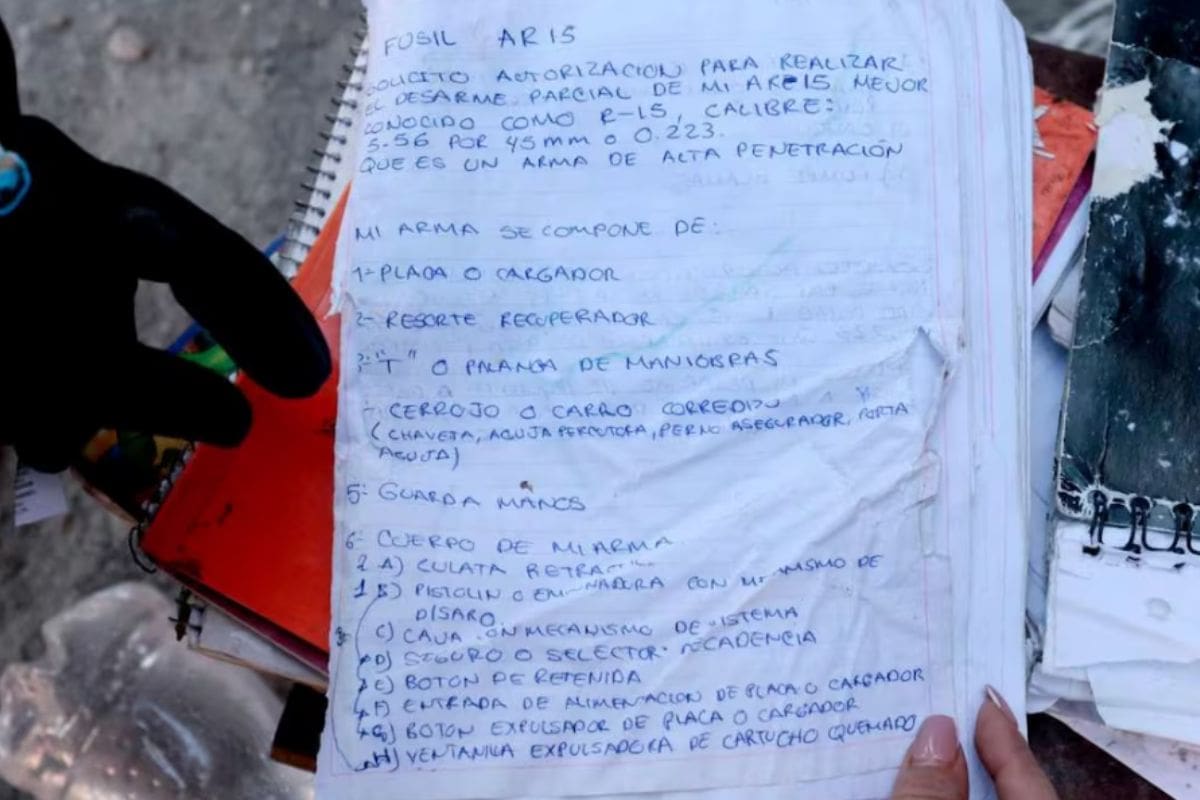 FUSIL AR15
SOLICITO AUTORIZACION PARA REALIZAR
EL DESARME PARCIAL DE MI ARE15 MEJOR
CONOCIDO COMO R-15, CALIBRE:
5.56 POR 45 mm o 0.223.
QUE ES UN ARMA DE ALTA PENETRACIÓN
MI ARMA SE COMPONE DE:
1- PLACA O CARGADOR
2- RESORTE RECUPERADOR
"T" O PALANCA DE MANIOBRAS
CERROJO O CARRO CORREDIZO
(CHAVETA, AGUJA PERCUTORA, PERNO ASEGURADOR, PORTA
AGUJA)
5- GUARDA MANOS
6- CUERPO DE MI ARMA.
2 A) CULATA
1 B) PISTOLIN O CON DE
DISARO
C) CAJA MECANISMO DE
D) SEGURO O SELECTOR
E) BOTON DE RETENIDA
F) ENTRADA DE ALIMENTACION DE PLACA O CARGADOR
G) BOTON EXPULSADOR DE PLACA O CARGADOR
H) VENTANILA EXPULSADORA DE CARTUCHO QUEMADO